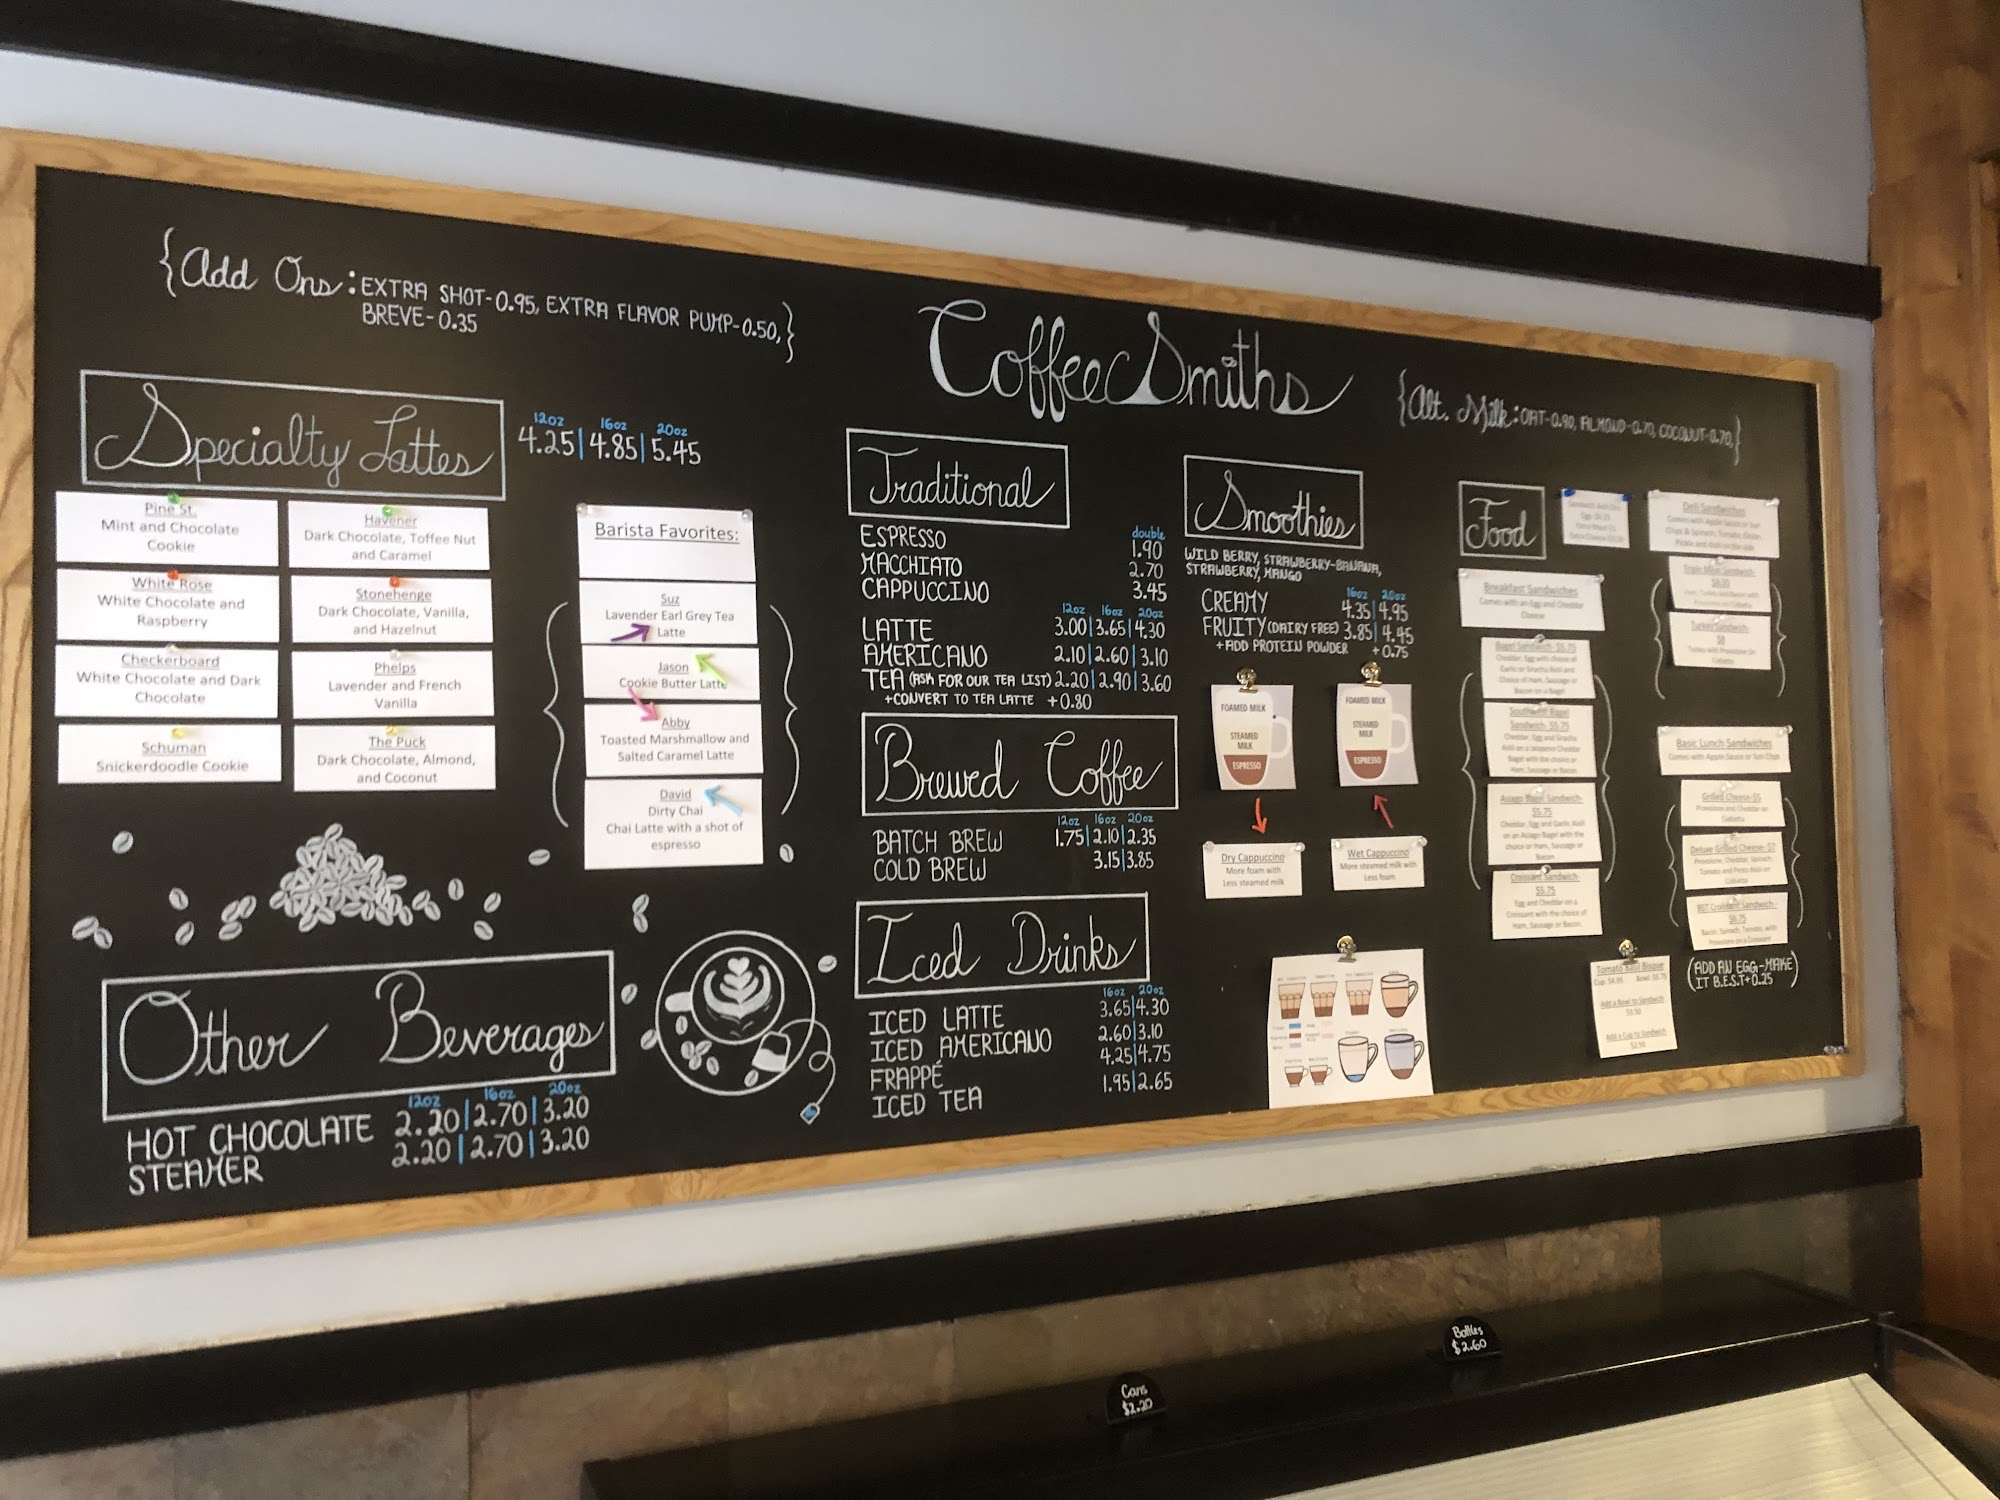 {Add Ons: EXTRA SHOT-0.95, EXTRA FLAVOR PUMP-0.50,}
BREVE-0.35
CoffeeSmiths
{Alt. Milk: OAT-0.90, ALMOND-0.70, COCONUT-0.70,}
Specialty Lattes
12oz 16oz 20oz
4.25|4.85|5.45
Pine St.
Mint and Chocolate
Cookie
White Rose
White Chocolate and
Raspberry
Checkerboard
White Chocolate and Dark
Chocolate
Schuman
Snickerdoodle Cookie
Havener
Dark Chocolate, Toffee Nut
and Caramel
Stonehenge
Dark Chocolate, Vanilla,
and Hazelnut
Phelps
Lavender and French
Vanilla
The Puck
Dark Chocolate, Almond,
and Coconut
Barista Favorites:
Suz
Lavender Earl Grey Tea
Latte
Jason
Cookie Butter Latte
Abby
Toasted Marshmallow and
Salted Caramel Latte
David
Dirty Chai
Chai Latte with a shot of
espresso
Other Beverages
12oz 16oz 20oz
HOT CHOCOLATE 2.20|2.70|3.20
STEAMER 2.20|2.70|3.20
Traditional
double
ESPRESSO 1.90
MACCHIATO 2.70
CAPPUCCINO 3.45
12oz 16oz 20oz
LATTE 3.00|3.65|4.30
AMERICANO 2.10|2.60|3.10
TEA (ASK FOR OUR TEA LIST) 2.20|2.90|3.60
+CONVERT TO TEA LATTE +0.80
Brewed Coffee
12oz 16oz 20oz
BATCH BREW 1.75|2.10|2.35
COLD BREW 3.15|3.85
Iced Drinks
16oz 20oz
ICED LATTE 3.65|4.30
ICED AMERICANO 2.60|3.10
FRAPPÉ 4.25|4.75
ICED TEA 1.95|2.65
Smoothies
WILD BERRY, STRAWBERRY-BANANA,
STRAWBERRY, MANGO
16oz 20oz
CREAMY 4.35|4.95
FRUITY (DAIRY FREE) 3.85|4.45
+ADD PROTEIN POWDER +0.75
FOAMED MILK
STEAMED
MILK
ESPRESSO
FOAMED MILK
STEAMED
MILK
ESPRESSO
Dry Cappuccino
More foam with
Less steamed milk
Wet Cappuccino
More steamed milk with
Less foam
Food
Breakfast Sandwiches
Comes with an Egg and Cheddar
Cheese
Bagel Sandwich- $5.75
Cheddar, Egg with choice of
Garlic or Sriracha Aioli and
Choice of Ham, Sausage or
Bacon on a Bagel
Southwest Bagel
Sandwich- $5.75
Cheddar, Egg and Sriracha
Aioli on a Jalapeno Cheddar
Bagel with the choice of
Ham, Sausage or Bacon
Asiago Bagel Sandwich-
$5.75
Cheddar, Egg and Garlic Aioli
on an Asiago Bagel with the
choice of Ham, Sausage or
Bacon
Croissant Sandwich-
$5.75
Egg and Cheddar on a
Croissant with the choice of
Ham, Sausage or Bacon
Deli Sandwiches
Triple Meat Sandwich-
Turkey Sandwich-
$8
Turkey with Provolone on
Ciabatta
Basic Lunch Sandwiches
Comes with Apple Sauce or Sun Chips
Grilled Cheese-$5
Provolone and Cheddar on
Ciabatta
Deluxe Grilled Cheese- $7
Provolone, Cheddar, Spinach,
Tomato and Pesto Aioli on
Ciabatta
BST Croissant Sandwich -
$6.75
Bacon, Spinach, Tomato, with
Provolone on a Croissant
(ADD AN EGG-MAKE
IT B.E.S.T+0.25)
Tomato Basil Bisque
Cup: $4.95 Bowl: $5.75
Add a Bowl to Sandwich
$3.50
Add a Cup to Sandwich
$2.50
Cans
$2.20
Bottles
$2.60